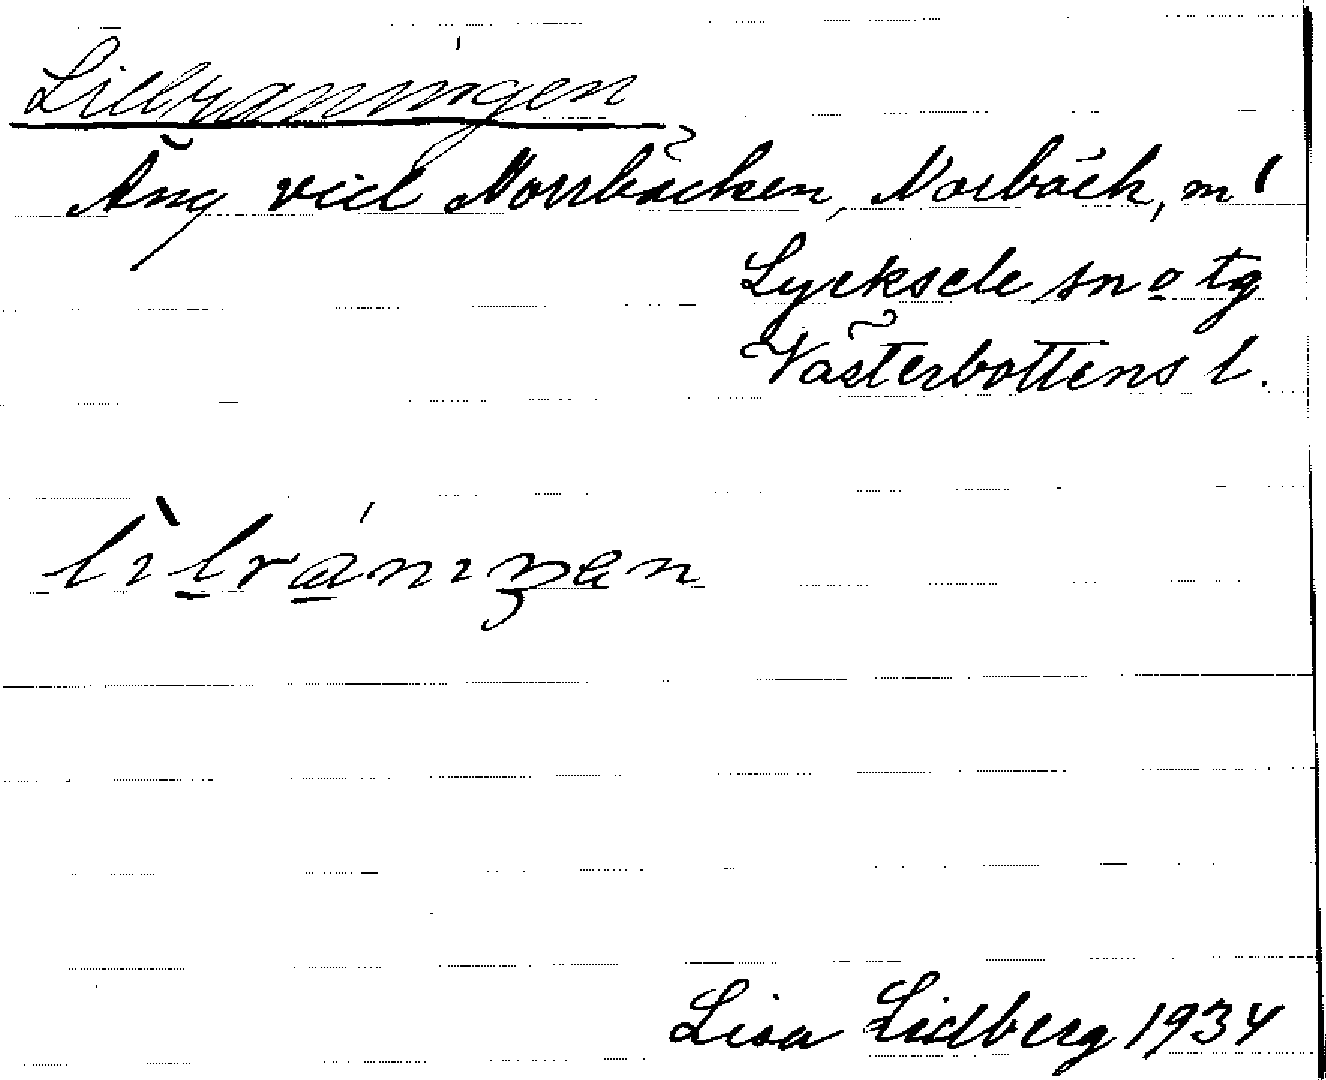 Lillraningen
Äng vid Norrbäcken, Norbäck, m 1
Lycksele sn o tg
Västerbottens l.
lìlránıŋen
Lisa Lidberg 1934